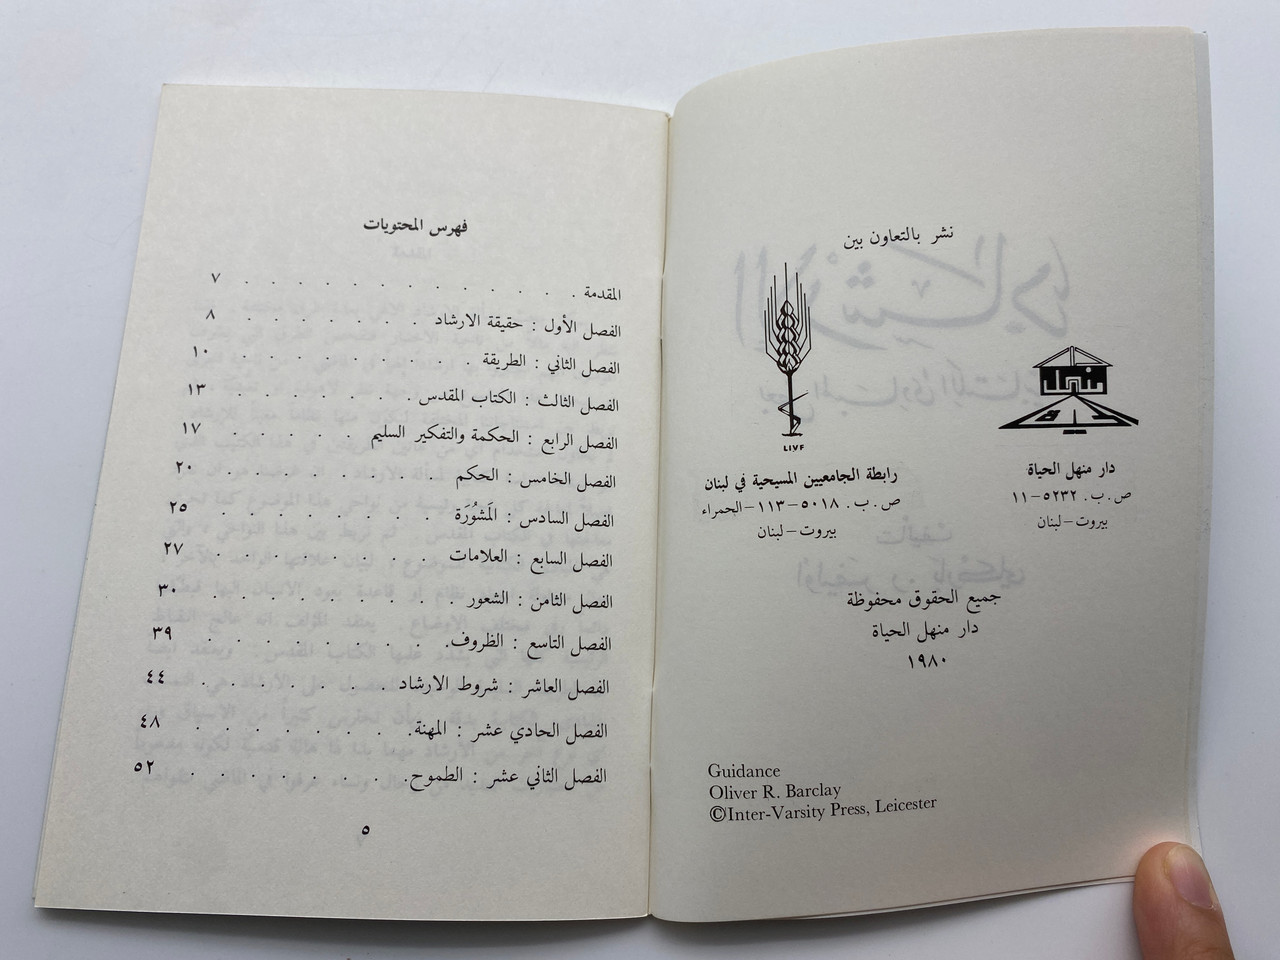 نشر بالتعاون بين
منهل
LIVF
دار منهل الحياة
ص.ب. ٥٢٣٢-١١
بيروت-لبنان
رابطة الجامعيين المسيحية في لبنان
ص.ب. ٥٠١٨-١١٣-الحمراء
بيروت-لبنان
جميع الحقوق محفوظة
دار منهل الحياة
١٩٨٠
Guidance
Oliver R. Barclay
©Inter-Varsity Press, Leicester
فهرس المحتويات
المقدمة . . . . . . . . . . . . . ٧
الفصل الأول : حقيقة الارشاد . . . . . . . ٨
الفصل الثاني : الطريقة . . . . . . . . . ١٠
الفصل الثالث : الكتاب المقدس . . . . . . . ١٣
الفصل الرابع : الحكمة والتفكير السليم . . . . . ١٧
الفصل الخامس : الحكم . . . . . . . . ٢٠
الفصل السادس : المَشُورَة . . . . . . . . ٢٥
الفصل السابع : العلامات . . . . . . . . ٢٧
الفصل الثامن : الشعور . . . . . . . . . ٣٠
الفصل التاسع : الظروف. . . . . . . . . ٣٩
الفصل العاشر : شروط الارشاد . . . . . . . ٤٤
الفصل الحادي عشر : المهنة. . . . . . . . ٤٨
الفصل الثاني عشر : الطموح. . . . . . . . ٥٢
٥